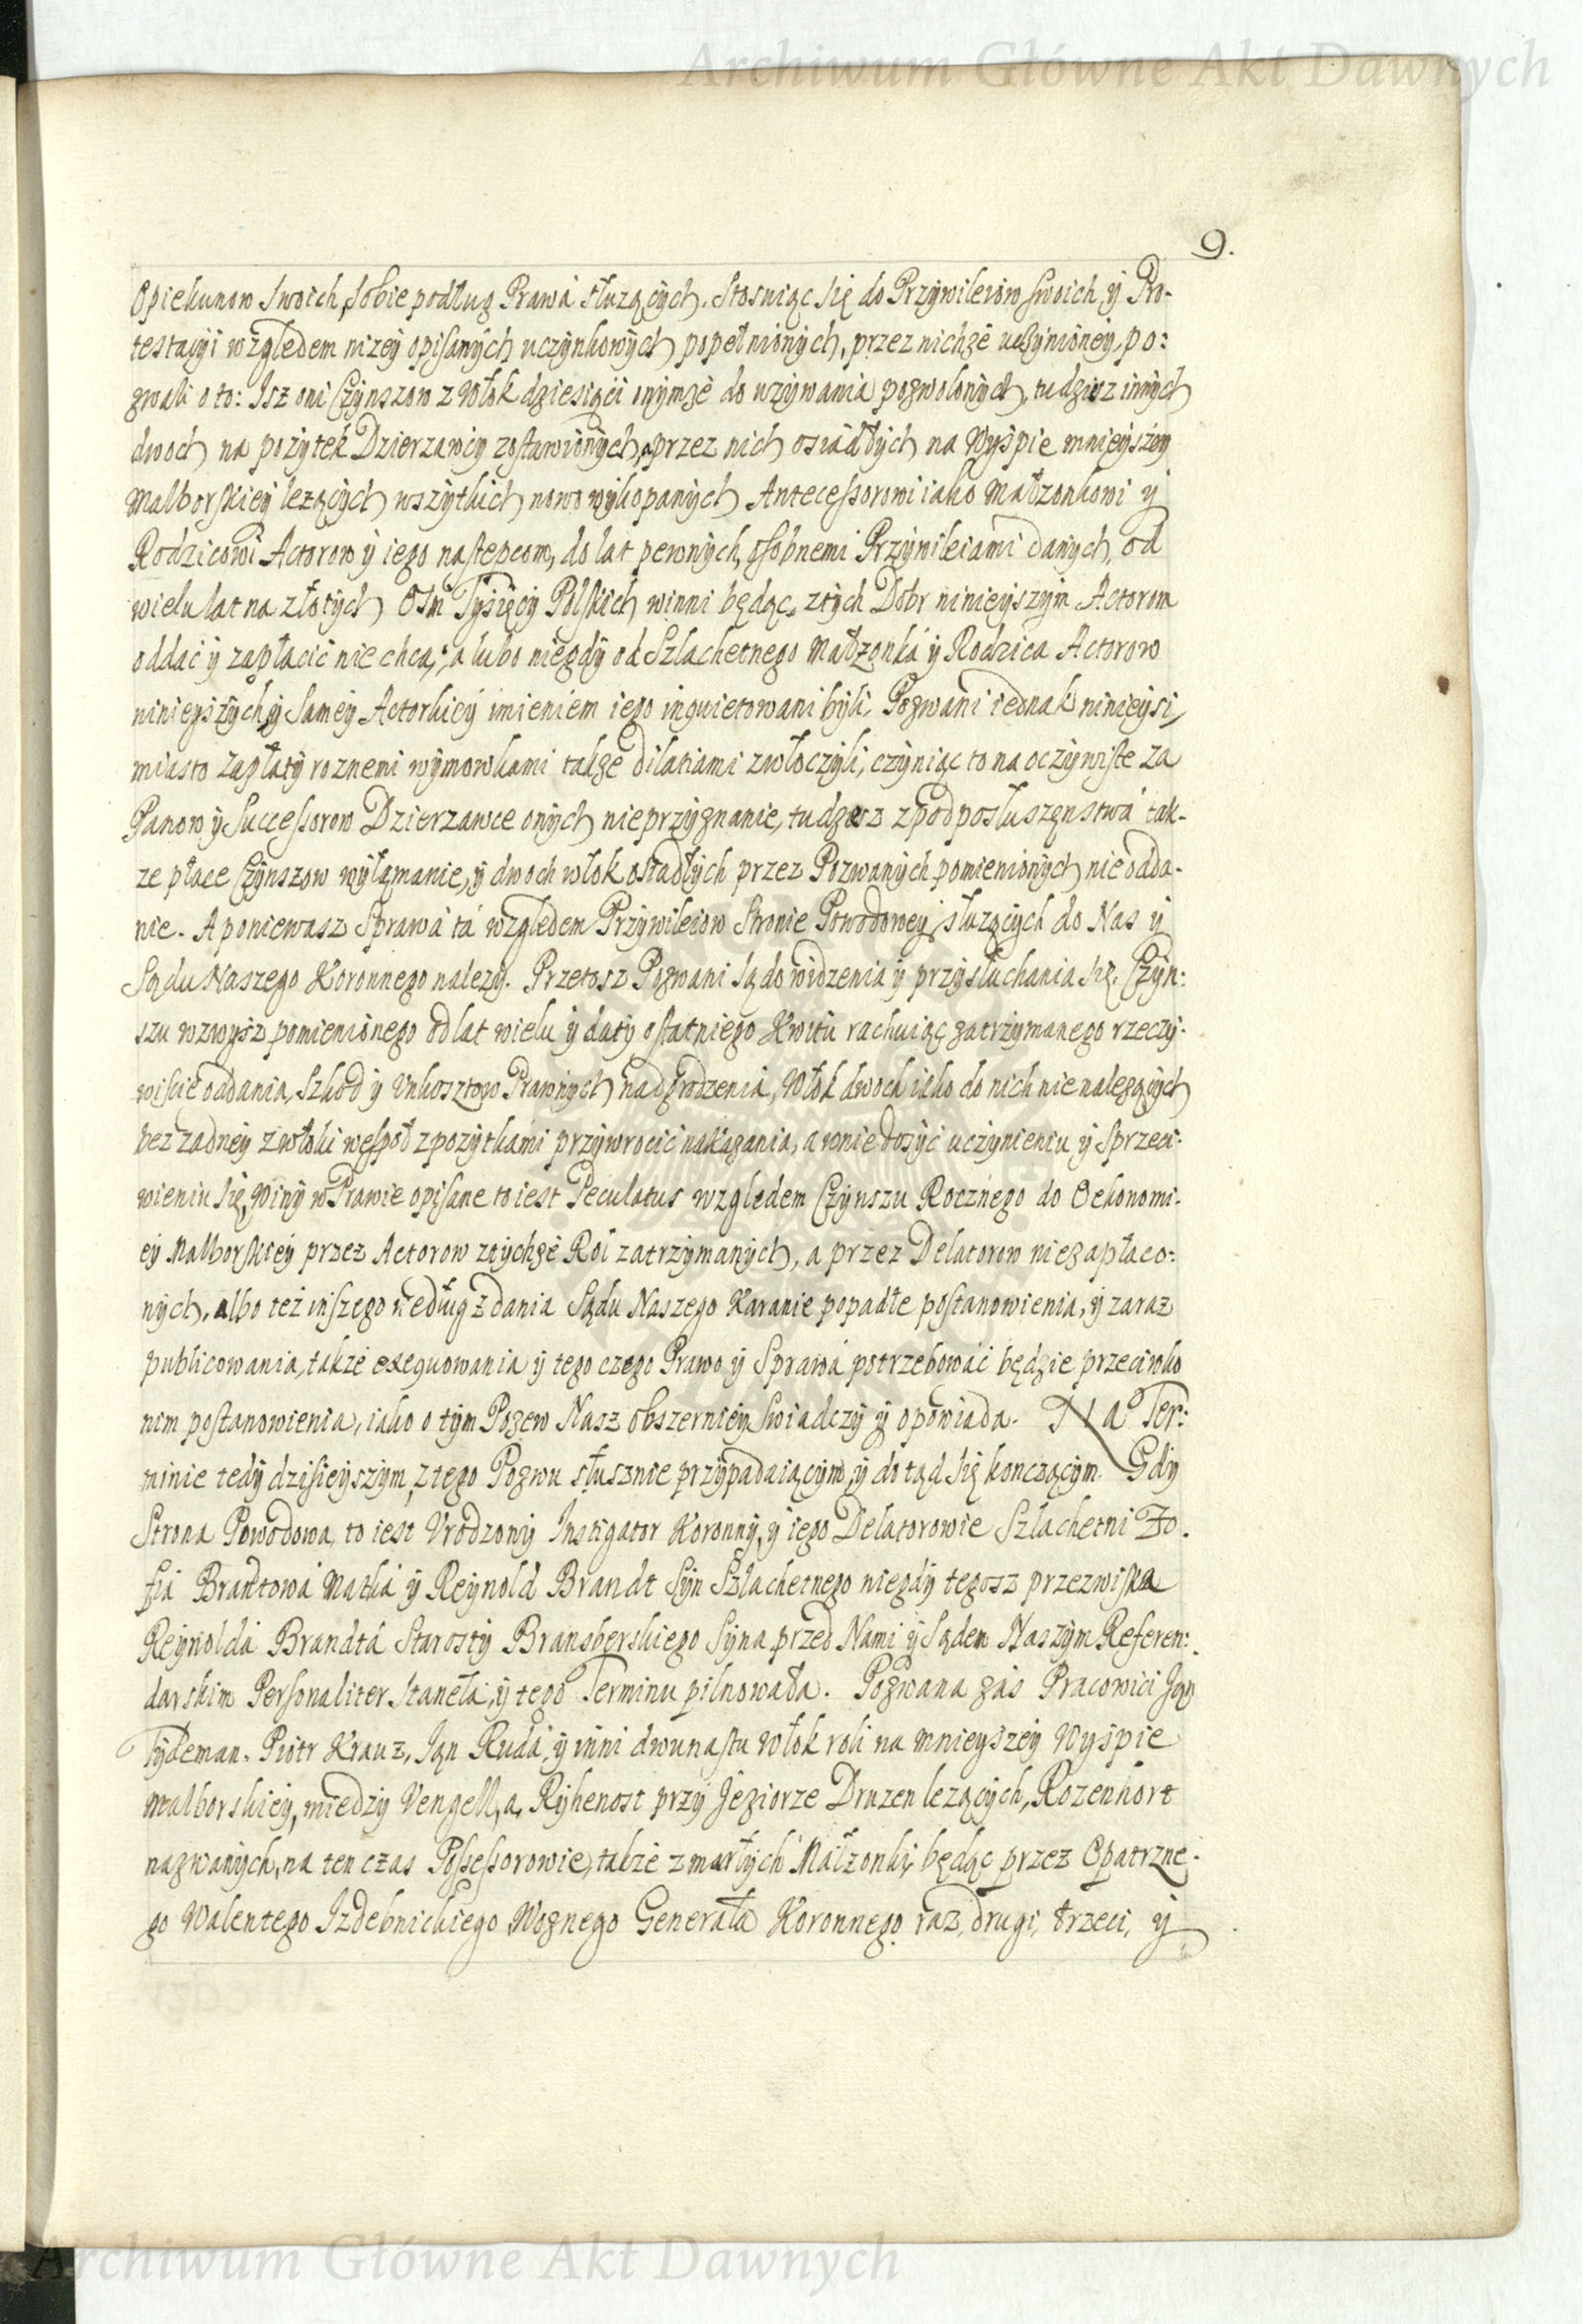 Archiwum Główne Akt Dawnych
9.
Opiekunow swoich, sobie podług Prawá służących. Stosuiąc się do Przywileiow swoich, y Pro-
testacyi względem niżey opisanych uczynkowych popełnionych, przez nichże uczynioney, po:
zwali o to: Isz oni Czynszow z Włok dziesiąći onymże do używania pozwolonych, tudziesz innych
dwoch na pożytek Dzierzawcy zostawionych, a przez nich osiadłych na Wyspie mnieyszey
Malborskiey leżących wszytkich nowo wykopanych Antecessorowi iako Małżonkowi y
Rodzicowi Actorow y iego nastepcom, do lat pewnych, osobnemi Przywileiami danych, od
wielu lat na złotych Osm Tysięcy Polskich winni będąc, z tych Dobr ninieyszym Actorom
oddać y zapłacić nie chcą, a lubo niegdy od Szlachetnego Małżonká y Rodzica Actorow
ninieyszych y samey Actorkiey imieniem iego inquietowani byli, Pozwani iednak ninieysi,
miasto zapłaty roznemi wymowkami także dilatiami zwłoczyli, czyniąc to na oczywiste za
Panow y Successorow Dzierzawce onych nieprzyznanie, tudziesz z pod posłuszęnstwá tak-
ze płace Czynszow wyłamanie, y dwoch włok osiadłych przez Pozwanych pomienionych nie odda-
nie. A poniewasz Sprawá tá względem Przywileiow Stronie Powodowey służących do Nas y
Sądu Naszego Koronnego nalezy. Przetosz Pozwani są do widzenia y przysłuchania się, Czyn:
szu wzwysz pomienionego od lat wielu y daty ostatniego Kwitu rachuiąc zatrzymanego rzeczy-
wiscie oddania, Szkod y Unkosztow Prawnych nadgrodzenia, Włok dwoch iako do nich nie nalezących
bez zadney zwłoki wespoł z pozytkami przywrocić nakazania, a w nie dosyć uczynieniu y sprzeci-
wieniu się, Winy w Prawie opisane to iest Peculatus względem Czynszu Rocznego do Oekonomi-
ey Malborskiey przez Actorow z tychże Rol zatrzymanych, a przez Delatorow niezapłaco:
nych, albo też inszego według zdania Sądu Naszego Karanie popadłe postanowienia, y zaraz
publicowania, także exequowania y tego czego Prawo y Sprawá potrzebowáć będzie przeciwko
nim postanowienia, iako o tym Pozew Nasz obszerniey swiadczy y opowiada. Na Ter:
minie tedy dzisieyszym, z tego Pozwu słusznie przypadaiącym, y do tąd się konczącym. Gdy
Strona Powodowa, to iest Vrodzony Instigator Koronny, y iego Delatorowie Szlachetni Zo-
fia Brandtowá Matká y Reynold Brandt Syn Szlachetnego niegdy tegosz przezwiska
Reynoldá Brandtá Starosty Bransberskiego Syna przed Nami y Sądem Naszym Referen:
darskim Personaliter stanęła, y tego Terminu pilnowała. Pozwana zás Pracowici Jan
Tydeman. Piotr Krauz, Ian Rudá, y inni dwunastu Włok roli na mnieyszey Wyspie
malborskiey, miedzy Vengell, a, Ryhenost przy Jeziorze Druzen lezących, Rozenhort
nazwanych, na ten czas Possessorowie, także zmarłych Małżonki, będąc przez Opatrzne-
go Walentego Izdebnickiego Woznego Generała Koronnego raz, drugi, trzeci, y
Archiwum Główne Akt Dawnych